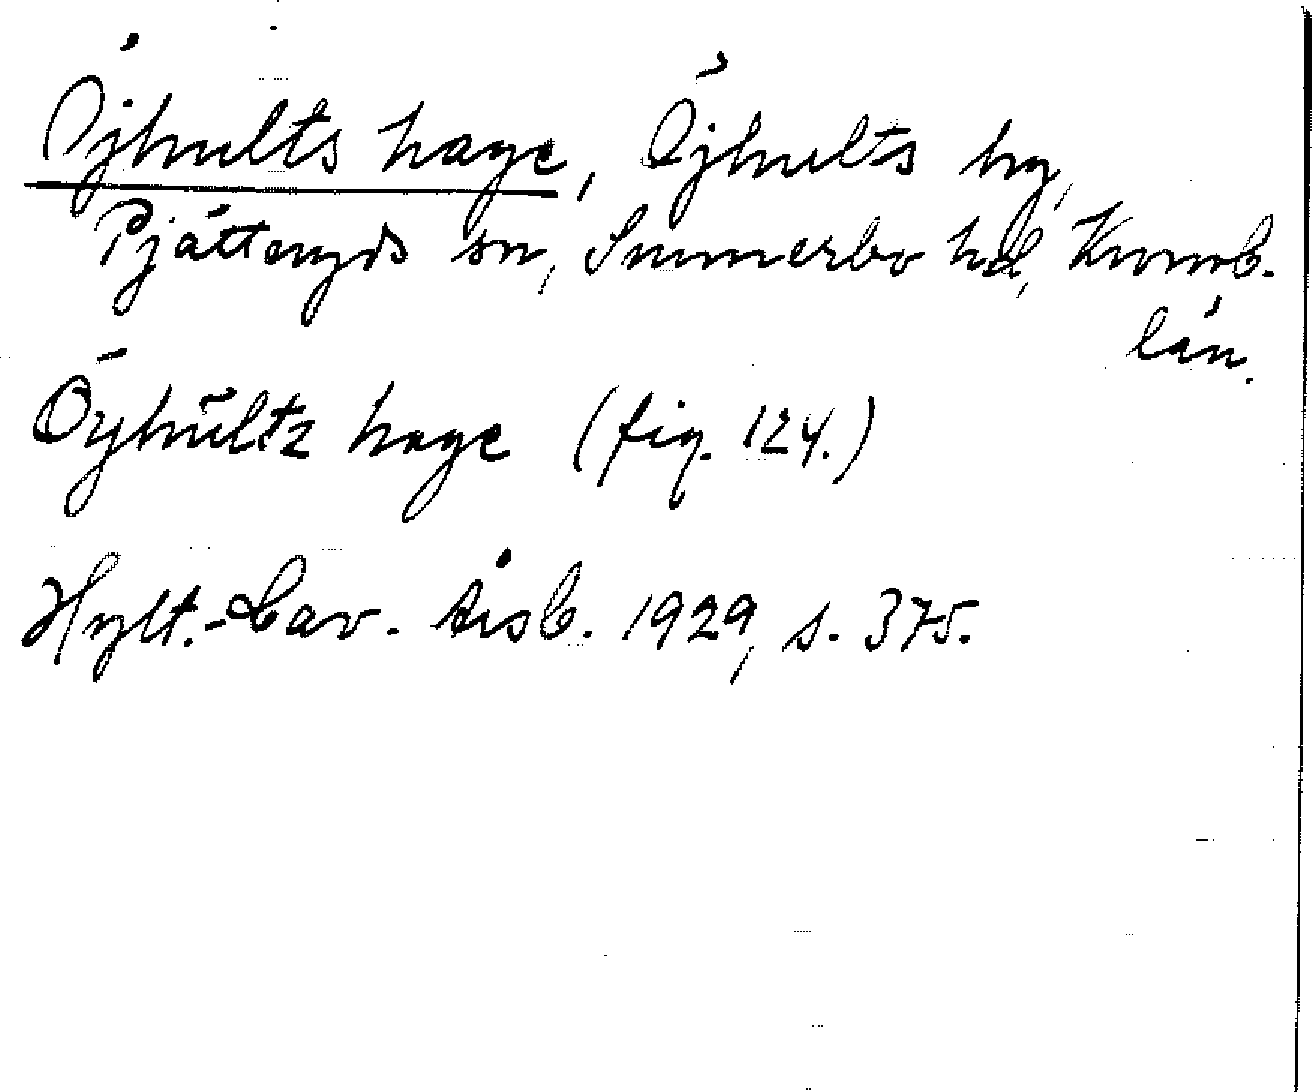 Öjhults hage, Öjhults by,
Pjätteryds sn, Sunnerbo hd, Kronob.
län.
Öyhultz hage (fig. 124.)
Hylt.-Cav. årsb. 1929, s. 375.